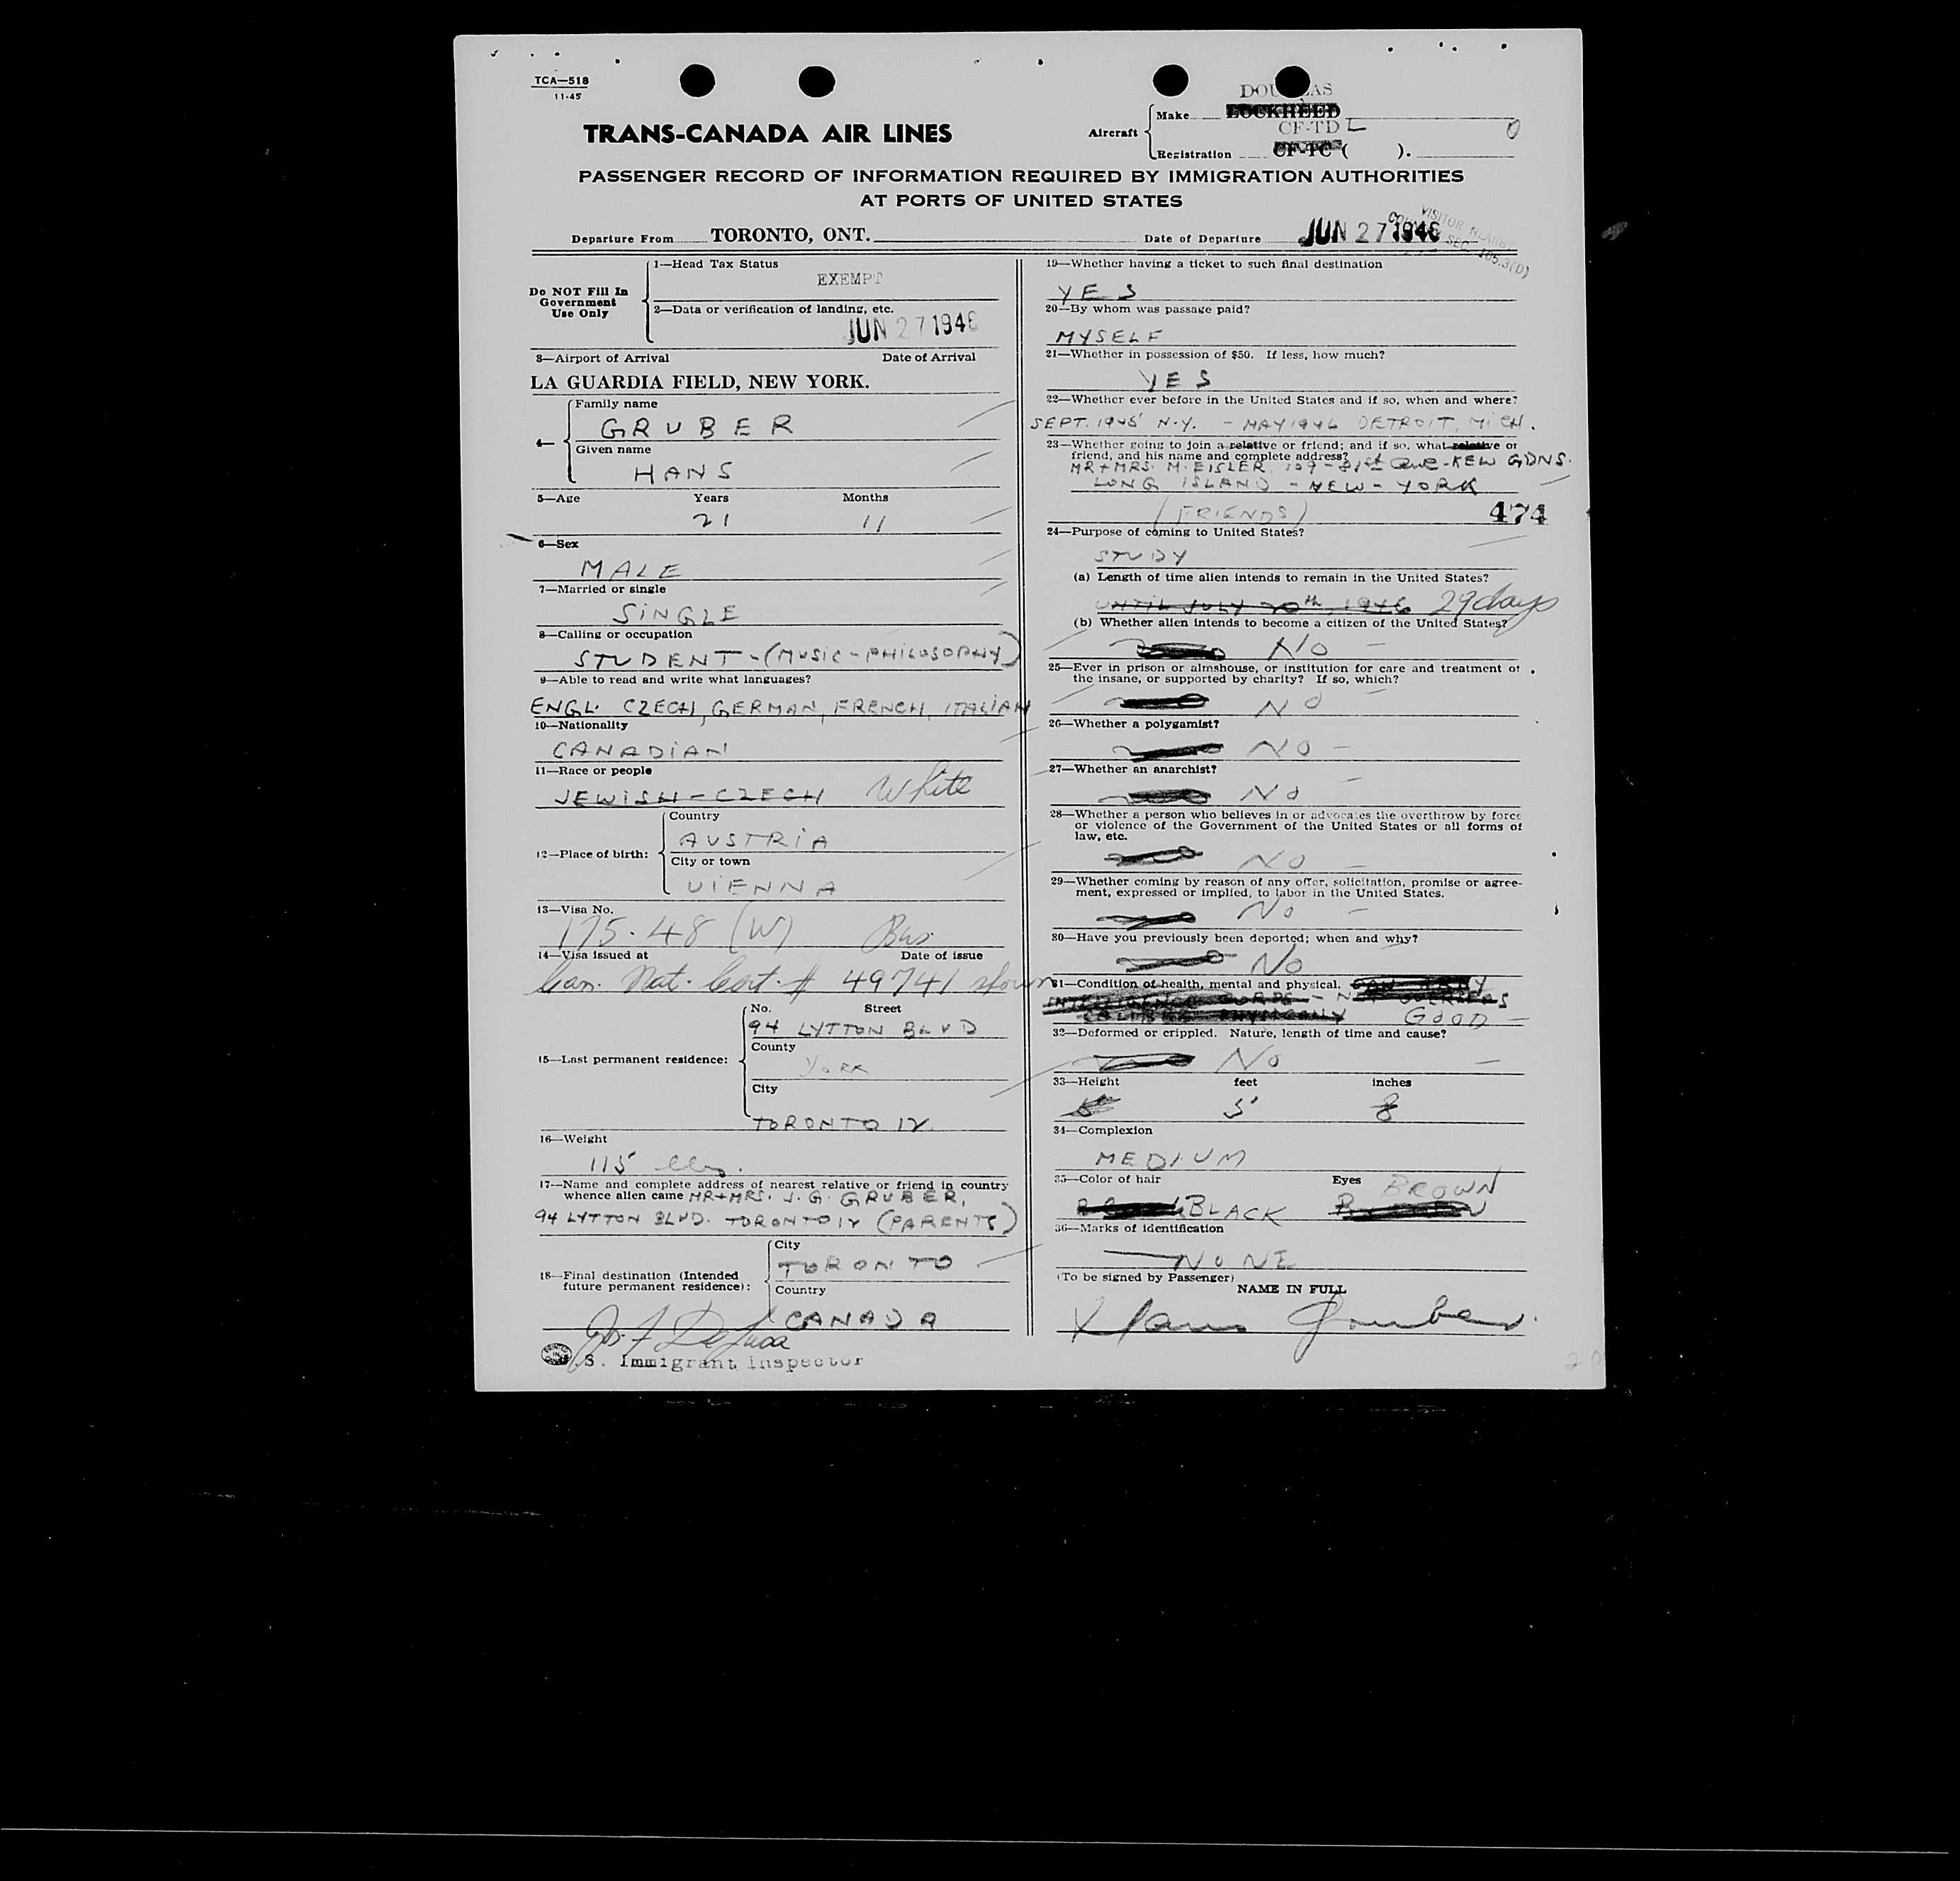 TCA—518
11-45
DOUGLAS
TRANS-CANADA AIR LINES
Aircraft
Make LOCKHEED
CF-TD L
Registration CF-TC ( ).
PASSENGER RECORD OF INFORMATION REQUIRED BY IMMIGRATION AUTHORITIES
AT PORTS OF UNITED STATES
Departure From TORONTO, ONT.
Date of Departure JUN 27 1946
VISITOR NEARBY
SEC. 105.3(D)
Do NOT Fill In
Government
Use Only
1—Head Tax Status
EXEMPT
2—Data or verification of landing, etc.
JUN 27 1946
3—Airport of Arrival Date of Arrival
LA GUARDIA FIELD, NEW YORK.
4—
Family name
GRUBER
Given name
HANS
5—Age Years Months
21 11
6—Sex
MALE
7—Married or single
SINGLE
8—Calling or occupation
STUDENT-(MUSIC-PHILOSOPHY)
9—Able to read and write what languages?
ENGL. CZECH, GERMAN, FRENCH, ITALIAN
10—Nationality
CANADIAN
11—Race or people
JEWISH-CZECH White
12—Place of birth:
Country
AUSTRIA
City or town
VIENNA
13—Visa No.
175.48 (W) Bus.
14—Visa issued at Date of issue
Can. Nat. Cert. # 49741 shown
15—Last permanent residence:
No. Street
94 LYTTON BLVD
County
YORK
City
TORONTO 12.
16—Weight
115 lbs.
17—Name and complete address of nearest relative or friend in country
whence alien came MR+MRS. J. G. GRUBER,
94 LYTTON BLVD. TORONTO 12 (PARENTS)
18—Final destination (Intended
future permanent residence):
City
TORONTO
Country
CANADA
Jos. F. DeLuca
U.S. Immigrant Inspector
19—Whether having a ticket to such final destination
YES
20—By whom was passage paid?
MYSELF
21—Whether in possession of $50. If less, how much?
YES
22—Whether ever before in the United States and if so, when and where?
SEPT. 1945 N.Y. - MAY 1946 DETROIT, MICH.
23—Whether going to join a relative or friend; and if so, what relative or
friend, and his name and complete address?
MR+MRS. M. EISLER, 109-81st Ave-KEW GDNS.
LONG ISLAND - NEW-YORK
(FRIENDS)
474
24—Purpose of coming to United States?
STUDY
(a) Length of time alien intends to remain in the United States?
UNTIL JULY 20th, 1946 29 days
(b) Whether alien intends to become a citizen of the United States?
NO -
25—Ever in prison or almshouse, or institution for care and treatment of
the insane, or supported by charity? If so, which?
NO
26—Whether a polygamist?
NO -
27—Whether an anarchist?
NO
28—Whether a person who believes in or advocates the overthrow by force
or violence of the Government of the United States or all forms of
law, etc.
NO
29—Whether coming by reason of any offer, solicitation, promise or agree-
ment, expressed or implied, to labor in the United States.
No -
30—Have you previously been deported; when and why?
No
31—Condition of health, mental and physical. CAN ARMY
INTELLIGENCE CORPS - NOT OVERSEAS
GOOD -
32—Deformed or crippled. Nature, length of time and cause?
No -
33—Height feet inches
5 8
34—Complexion
MEDIUM
35—Color of hair Eyes BROWN
BLACK
36—Marks of identification
NONE
(To be signed by Passenger)
NAME IN FULL
X Hans Gruber.